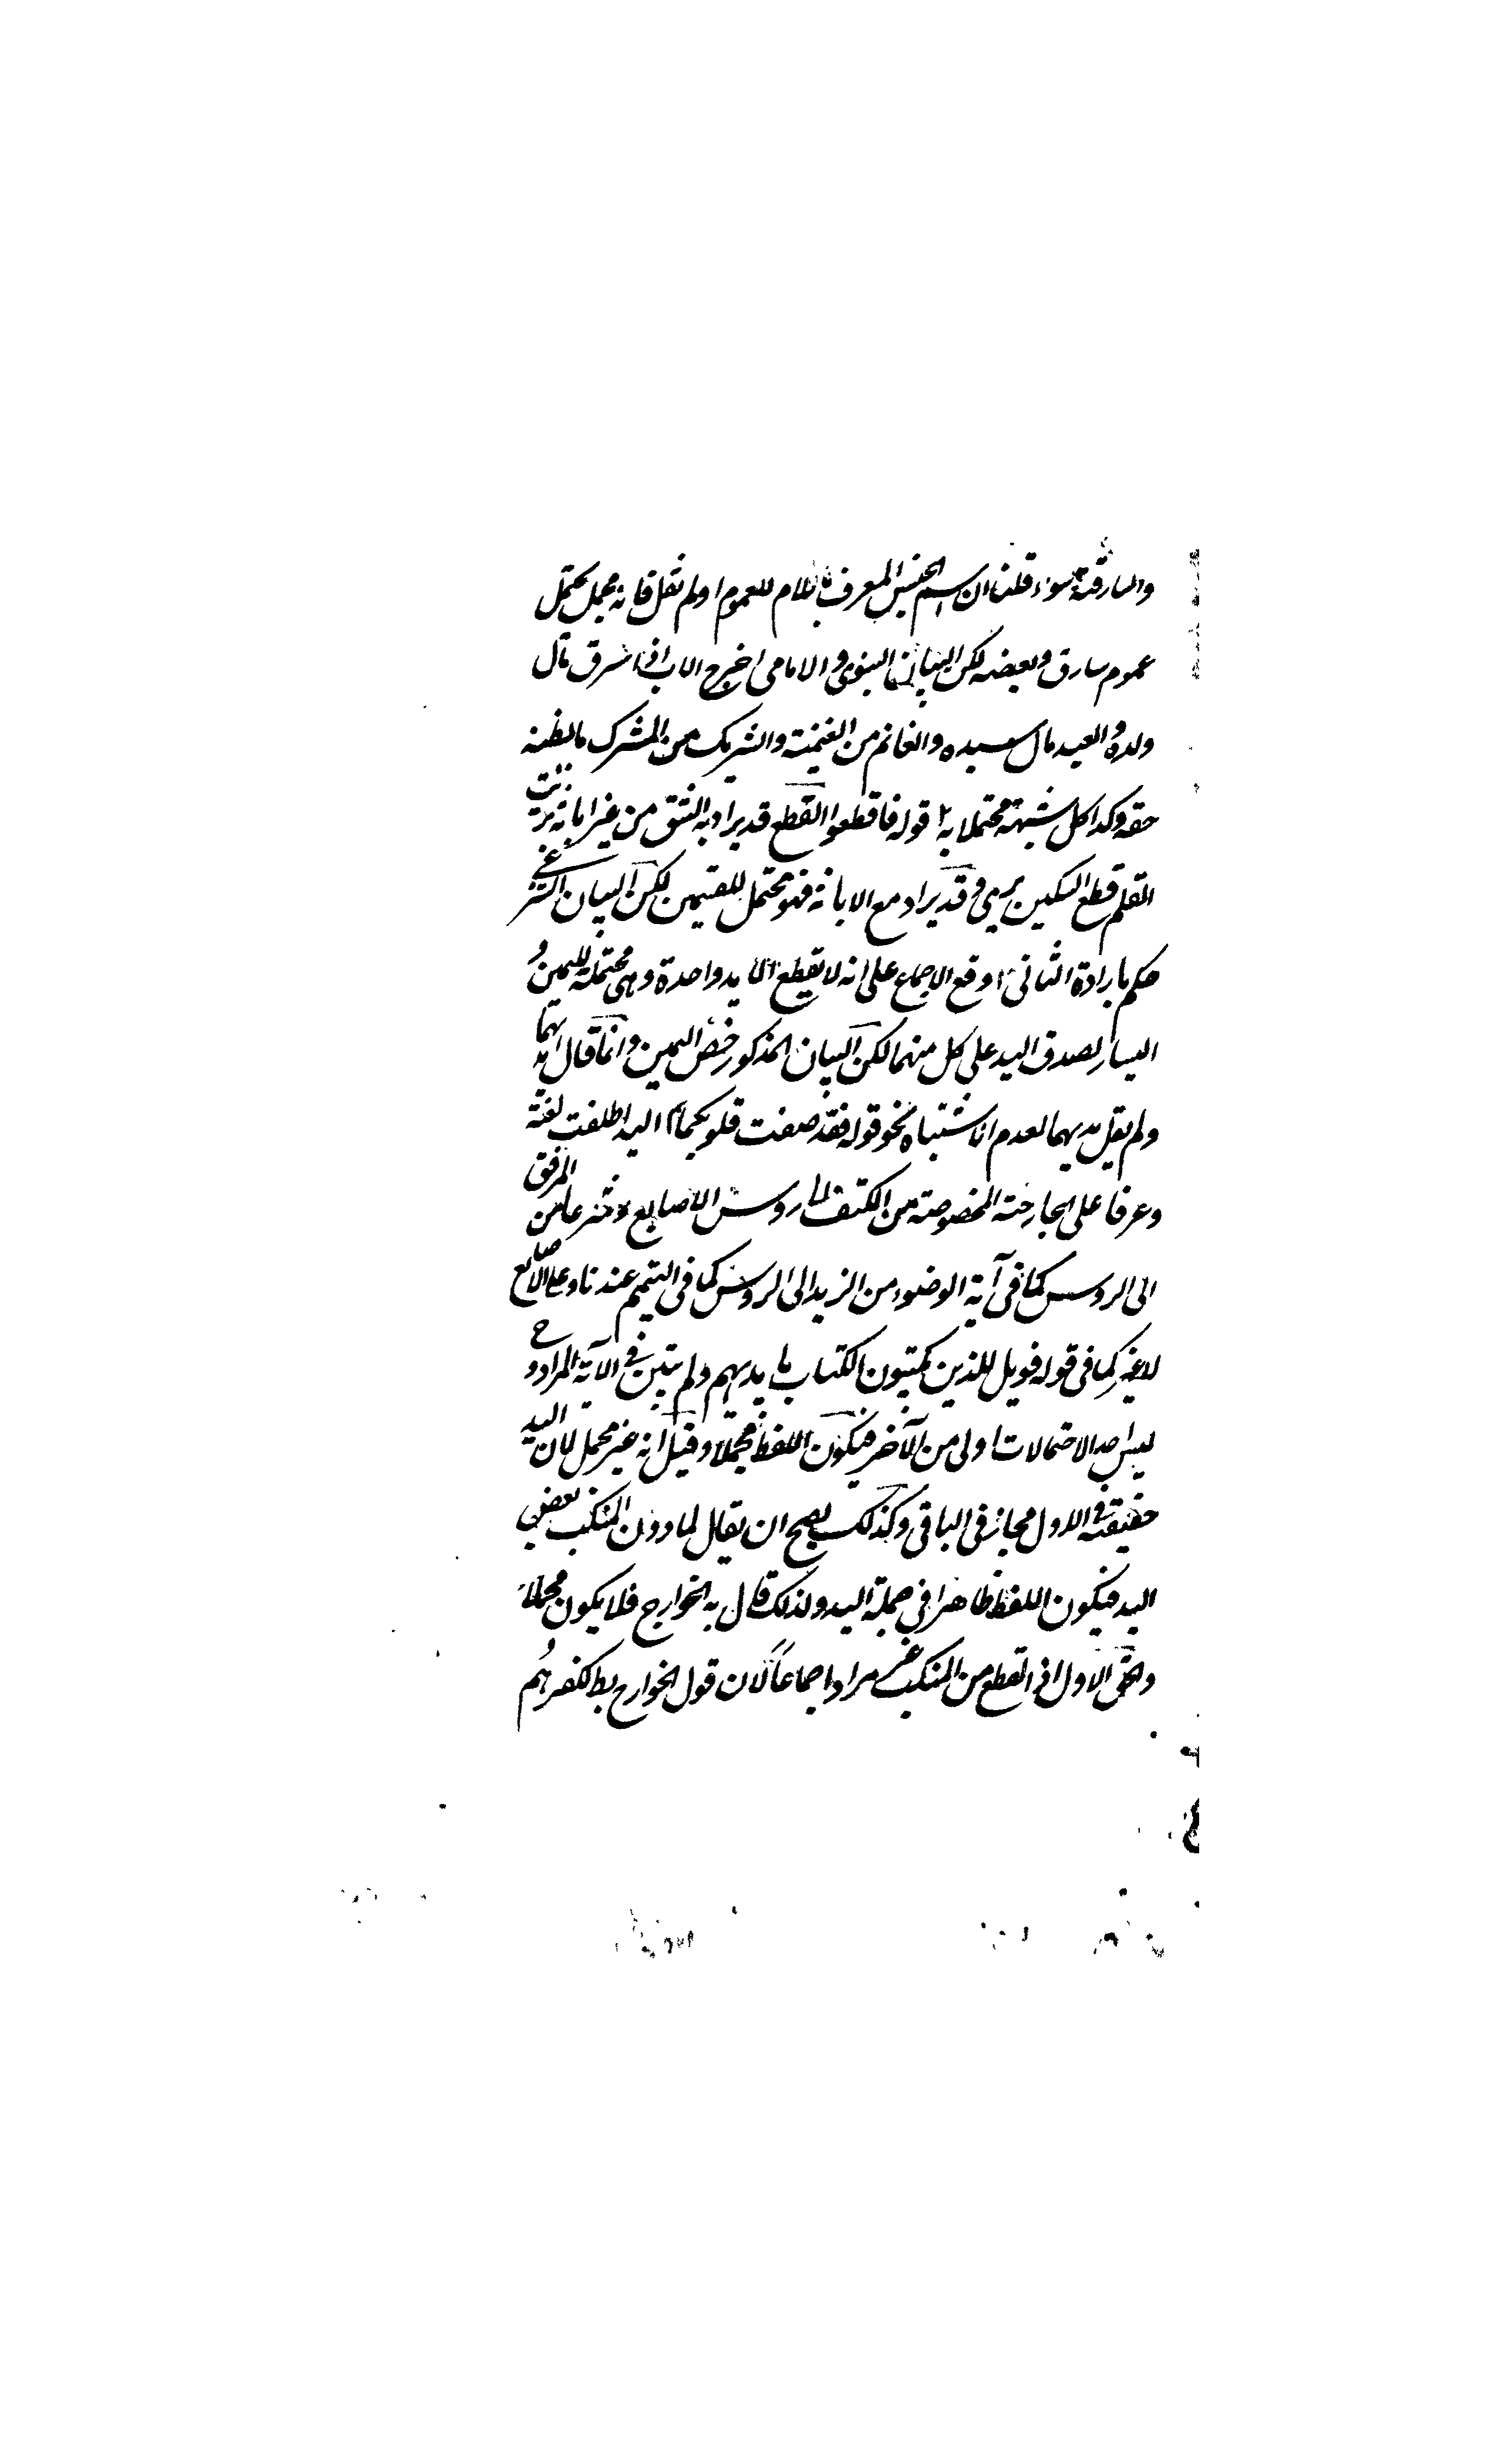 والسارقة سواء قلنا ان اسم الجنس المعرف باللام للعموم او لم نقل فانه مجمل يحتمل
عموم سارق وبعضه لكن البيان النبوي والامامي اخرج الاب اذا سرق مال
ولده والعبد مال سيده والغانم من الغنيمة والشريك من المشترك ما يظنه
حقه وكذا كل شبهة محتملا به ٢ قوله فاقطعوا القطع قد يراد به الشق من غير ابانة بريت
القلم قطع السكين يدي وقد يراد مع الابانة فهو محتمل للقسمين لكن البيان الشرعي
حكم بارادة الثاني ٣ وقع الاجماع على انه لا يقطع الا يد واحدة وهي محتملة لليمين و
اليسار لصدق اليد على كل منهما لكن البيان المذكور خصص اليمين وانما قال ايديهما
ولم يقل يديهما لعدم الاشتباه نحو قوله فقد صغت قلوبكما ٤ اليد اطلقت لغة
وعرفا على الجارحة المخصوصة من الكتف الى رؤس الاصابع وشرعا من المرفق
الى الرؤس كما في آية الوضوء ومن الزند الى الرؤس كما في التيمم عندنا وعلى الاصابع
لا غير كما في قوله فويل للذين يكتبون الكتاب بايديهم ولم يتبين في الآية المراد و ح
ليس احد الاحتمالات اولى من الآخر فيكون اللفظ مجملا وقيل انه غير مجمل لان اليد
حقيقة في الاول مجاز في الباقي وكذلك يصح ان يقال لما دون المنكب بعض
اليد فيكون اللفظ ظاهرا في جملة اليد ولذلك قال به الخوارج فلا يكون مجملا
والحق الاول اذ القطع من المنكب غير مراد اجماعا لان قول الخوارج بط لكفرهم